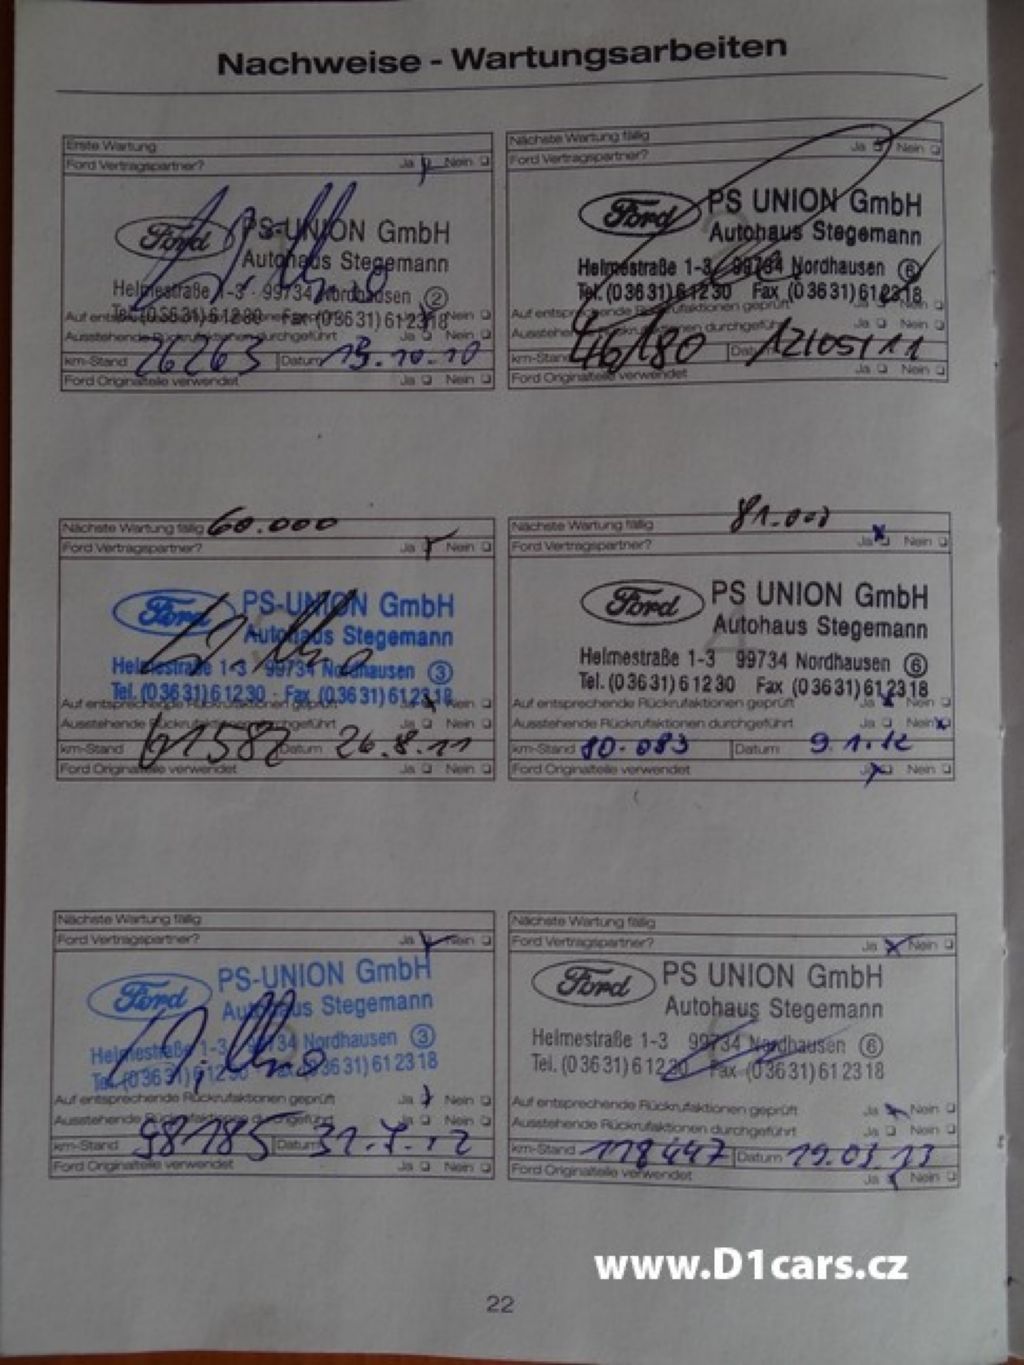 Nachweise - Wartungsarbeiten
Erste Wartung
Ford Vertragspartner? Ja Nein
Ford PS-UNION GmbH
Autohaus Stegemann
Helmestraße 1-3 99734 Nordhausen 2
Tel. (03631) 61230 Fax (03631) 612318
Auf entsprechende Rückrufaktionen geprüft Ja Nein
Ausstehende Rückrufaktionen durchgeführt Ja Nein
km-Stand 26263 Datum 13.10.10
Ford Originalteile verwendet Ja Nein
Nächste Wartung fällig
Ford Vertragspartner? Ja Nein
Ford PS UNION GmbH
Autohaus Stegemann
Helmestraße 1-3 99734 Nordhausen 6
Tel. (03631) 61230 Fax (03631) 612318
Auf entsprechende Rückrufaktionen geprüft Ja Nein
Ausstehende Rückrufaktionen durchgeführt Ja Nein
km-Stand 46180 Datum 12/05/11
Ford Originalteile verwendet Ja Nein
Nächste Wartung fällig 60.000
Ford Vertragspartner? Ja Nein
Ford PS-UNION GmbH
Autohaus Stegemann
Helmestraße 1-3 99734 Nordhausen 3
Tel. (03631) 61230 · Fax (03631) 612318
Auf entsprechende Rückrufaktionen geprüft Ja Nein
Ausstehende Rückrufaktionen durchgeführt Ja Nein
km-Stand 61587 Datum 26.8.11
Ford Originalteile verwendet Ja Nein
Nächste Wartung fällig 81.000
Ford Vertragspartner? Ja Nein
Ford PS UNION GmbH
Autohaus Stegemann
Helmestraße 1-3 99734 Nordhausen 6
Tel. (03631) 61230 Fax (03631) 612318
Auf entsprechende Rückrufaktionen geprüft Ja Nein
Ausstehende Rückrufaktionen durchgeführt Ja Nein
km-Stand 80.083 Datum 9.1.12
Ford Originalteile verwendet Ja Nein
Nächste Wartung fällig
Ford Vertragspartner? Ja Nein
Ford PS-UNION GmbH
Autohaus Stegemann
Helmestraße 1-3 99734 Nordhausen 3
Tel. (03631) 61230 Fax (03631) 612318
Auf entsprechende Rückrufaktionen geprüft Ja Nein
Ausstehende Rückrufaktionen durchgeführt Ja Nein
km-Stand 98185 Datum 31.7.12
Ford Originalteile verwendet Ja Nein
Nächste Wartung fällig
Ford Vertragspartner? Ja Nein
Ford PS UNION GmbH
Autohaus Stegemann
Helmestraße 1-3 99734 Nordhausen 6
Tel. (03631) 61230 Fax (03631) 612318
Auf entsprechende Rückrufaktionen geprüft Ja Nein
Ausstehende Rückrufaktionen durchgeführt Ja Nein
km-Stand 118447 Datum 19.03.13
Ford Originalteile verwendet Ja Nein
www.D1cars.cz
22